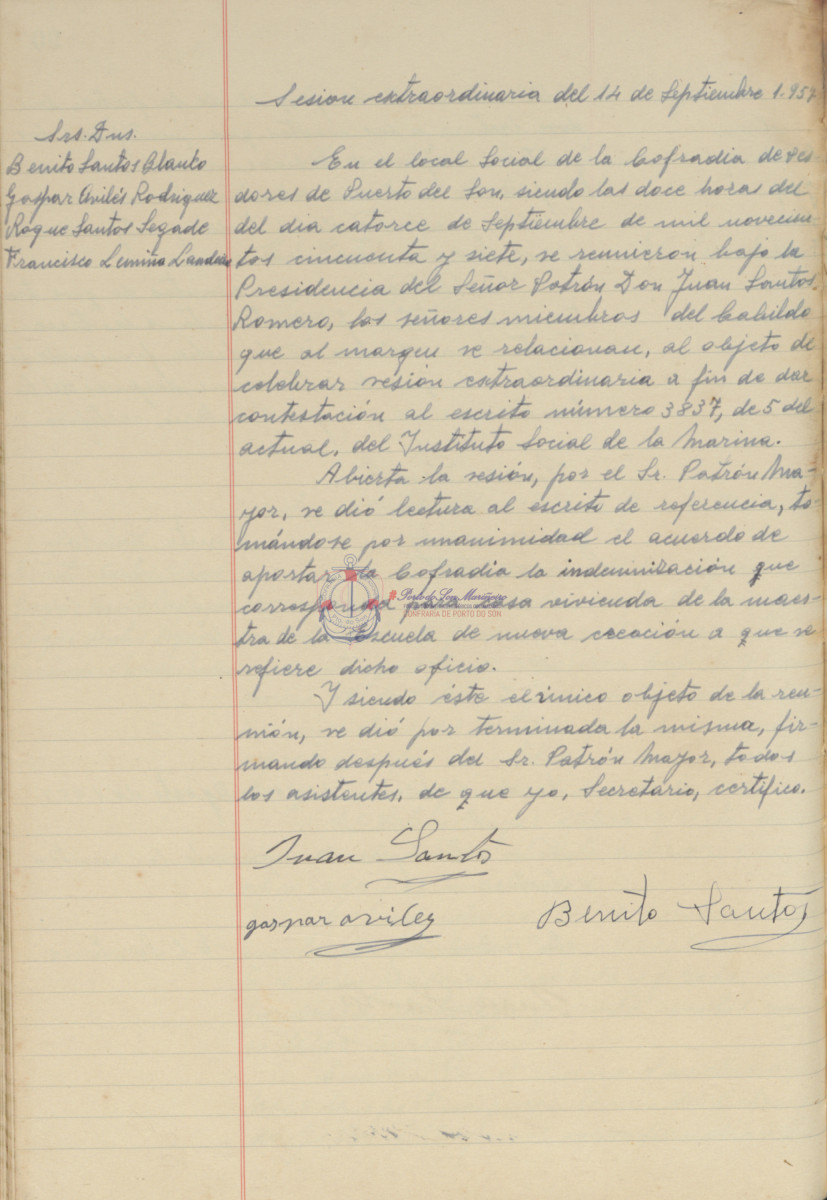 Sesion extraordinaria del 14 de Septiembre 1.957
Srs. Dns.
Benito Santos Blanco
Gaspar Avilés Rodriguez
Roque Santos Segade
Francisco Lemiña
En el local Social de la Cofradia de Pes
dores de Puerto del Son, siendo las doce horas del
del dia catorce de Septiembre de mil novecien-
tos cincuenta y siete, se reunieron bajo la
Presidencia del Señor Patrón Don Juan Santos
Romero, los señores miembros del Cabildo
que al margen se relacionan, al objeto de
celebrar sesión extraordinaria a fin de dar
contestación al escrito número 3837, de 5 del
actual, del Instituto Social de la Marina.
Abierta la sesión, por el Sr. Patrón Ma-
yor, se dió lectura al escrito de referencia, to-
mándose por unanimidad el acuerdo de
aportar la Cofradia la indemnización que
corresponda para casa vivienda de la maes-
tra de la Escuela de nueva creación a que se
refiere dicho oficio.
Y siendo éste el único objeto de la reu-
nión, se dió por terminada la misma, fir-
mando después del Sr. Patrón Mayor, todos
los asistentes, de que yo, Secretario, certifico.
Juan Santos
gaspar aviles
Benito Santos
Porto do Son Mariñeiro
CONFRARIA DE PORTO DO SON